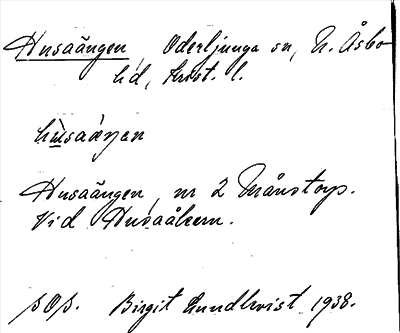 Husaängen, Oderljunga sn, N. Åsbo
hd, Krist. l.
hùsaáŋen
Husaängen, nr 2 Månstorp.
Vid Husaåkern.
Birgit Lundkvist 1938.